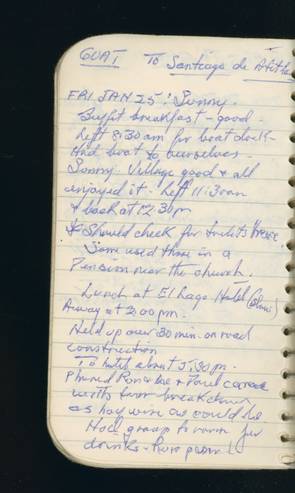 GUAT To Santiago de Atitlan
FRI JAN 25: Sunny.
Buffet breakfast - good.
Left 8:30 am for boat dock -
Had boat to ourselves -
Sunny. Village good & all
enjoyed it. Left 11:30am
& back at 12:30 pm
* Should check for toilets there.
Some used those in a
Pension near the church.
Lunch at El Lago Hotel
Away at 2:00 pm.
Held up over 30 min. on road
construction
To hotel about 5:30 pm.
Phoned & Paul
as could be
Had group to room for
drinks -